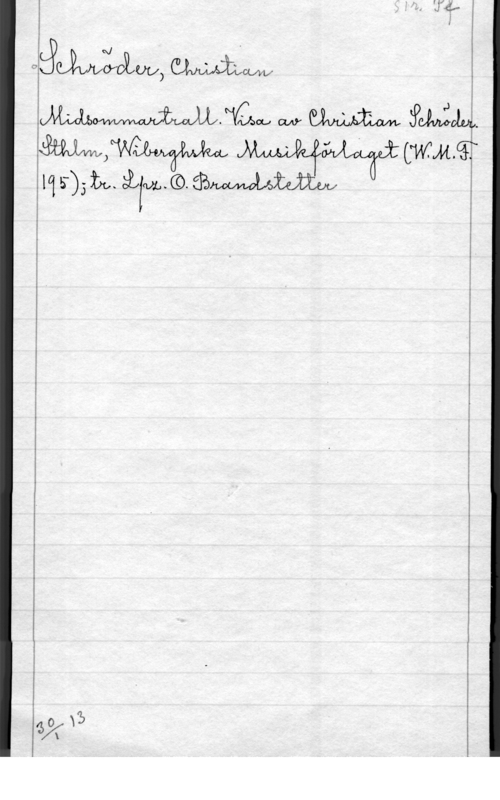 Schröder, Christian
Midsommartrall. Visa av Christian Schröder.
Sthlm, Wiberghska Musikförlaget (W.M.F.
195); tr. Lpz. O. Brandstetter
30/1 13